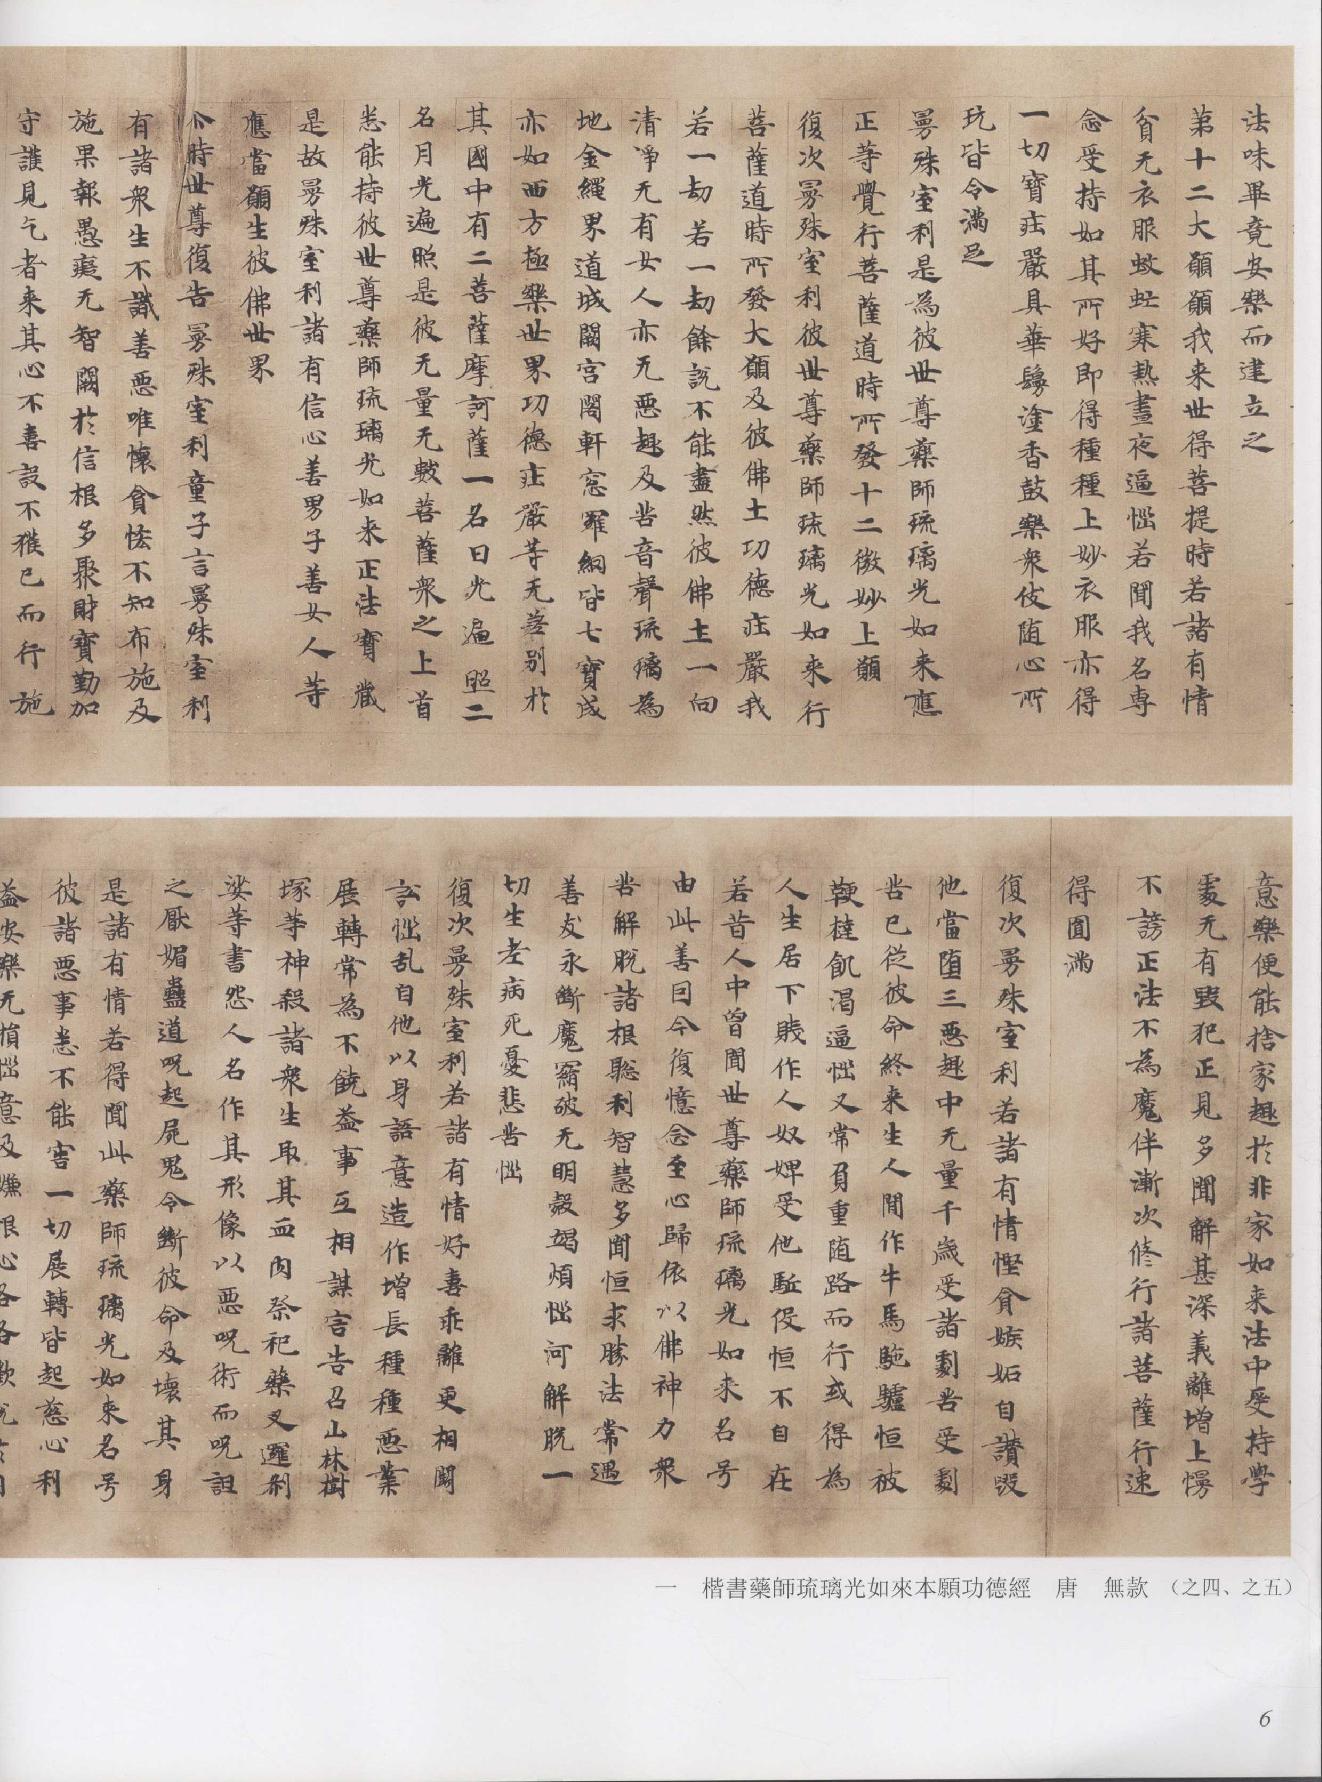 法味畢竟安樂而建立之
第十二大願願我来世得菩提時若諸有情
貧无衣服蚊虻寒熱晝夜逼惱若聞我名専
念受持如其所好即得種種上妙衣服亦得
一切寶莊嚴具華鬘塗香鼓樂衆伎随心所
玩皆令滿足
曼殊室利是為彼世尊藥師琉璃光如来應
正等覺行菩薩道時所發十二微妙上願
復次曼殊室利彼世尊藥師琉璃光如来行
菩薩道時所發大願及彼佛土功德莊嚴我
若一劫若一劫餘説不能盡然彼佛土一向
清淨无有女人亦无惡趣及苦音聲琉璃為
地金繩界道城闕宮閣軒窓羅網皆七寶成
亦如西方極樂世界功德莊嚴等无差别於
其國中有二菩薩摩訶薩一名日光遍照二
名月光遍照是彼无量无數菩薩衆之上首
悉能持彼世尊藥師琉璃光如来正法寶藏
是故曼殊室利諸有信心善男子善女人等
應當願生彼佛世界
尒時世尊復告曼殊室利童子言曼殊室利
有諸衆生不識善惡唯懷貪恡不知布施及
施果報愚癡无智闕於信根多聚財寶勤加
守護見乞者来其心不喜設不獲已而行施
意樂便能捨家趣於非家如来法中受持學
處无有毀犯正見多聞解甚深義離增上慢
不謗正法不為魔伴漸次修行諸菩薩行速
得圓滿
復次曼殊室利若諸有情慳貪嫉妬自讃毀
他當堕三惡趣中无量千歳受諸劇苦受劇
苦已從彼命終来生人間作牛馬駞驢恒被
鞭撻飢渴逼惱又常負重随路而行或得為
人生居下賎作人奴婢受他駈役恒不自在
若昔人中曾聞世尊藥師琉璃光如来名号
由此善因今復憶念至心歸依以佛神力衆
苦解脱諸根聡利智慧多聞恒求勝法常遇
善友永斷魔羂破无明㲉竭煩惱河解脱一
切生老病死憂悲苦惱
復次曼殊室利若諸有情好喜乖離更相闘
訟惱乱自他以身語意造作增長種種惡業
展轉常為不饒益事互相謀害告召山林樹
塚等神殺諸衆生取其血肉祭祀藥叉邏刹
娑等書怨人名作其形像以惡呪術而呪詛
之厭媚蠱道呪起屍鬼令斷彼命及壞其身
是諸有情若得聞此藥師琉璃光如来名号
彼諸惡事悉不能害一切展轉皆起慈心利
益安樂无損惱意及嫌恨心各各歡
一　楷書藥師琉璃光如來本願功德經　唐　無款　（之四、之五）
6